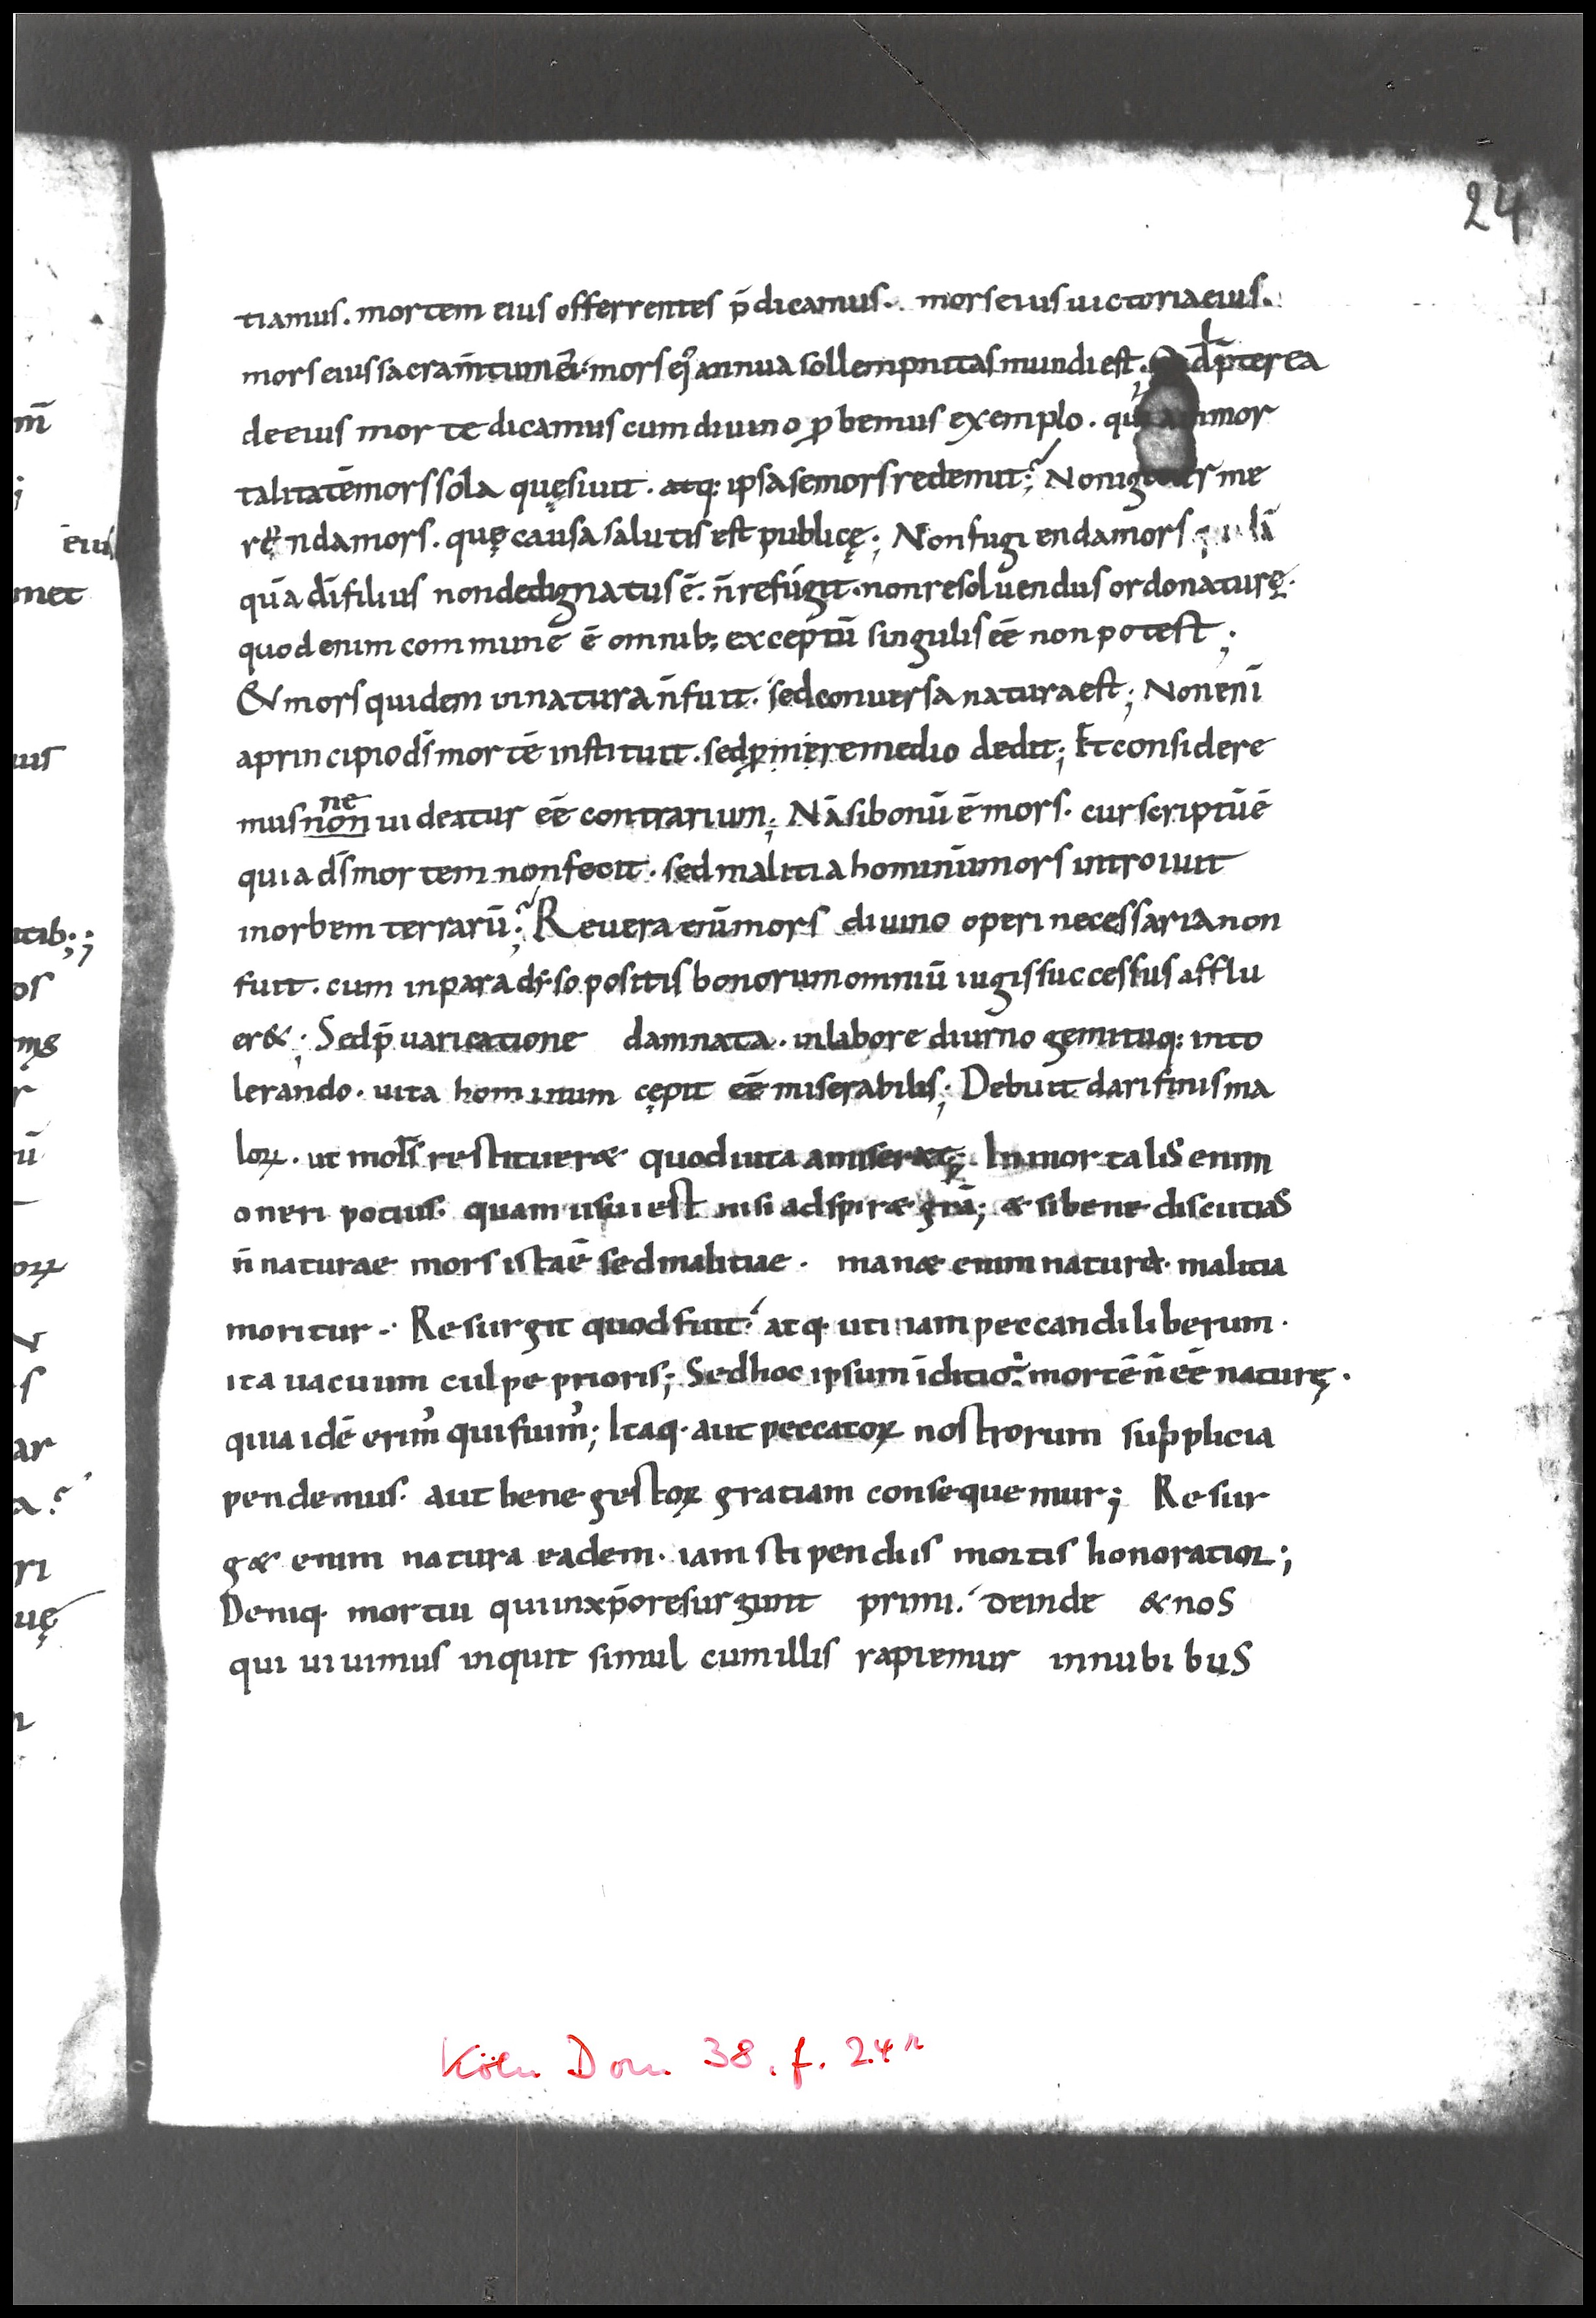 24
tiamus. mortem eius offerrentes p̄dicamus. mors eius uictoria eius.
mors eius sacram̄tum ē. mors ei᷒ annua sollempnitas mundi est. p̄terea
de eius morte dicamus cum diuino ꝓbemus exemplo. inmor
talitatē mors sola quęsiuit. atq: ipsa se mors redemit; Non me
renda mors. quę causa salutis est publicę; Non fugienda mors
quā dī filius non dedignatus ē. n̄ refugit. non resoluendus ordo naturę.
quod enim commune ē omnib; exceptū singulis eē non potest;
& mors quidem in natura n̄ fuit. sed conuersa natura est; Non enī
a principio ds̄ mortē instituit. sed pro remedio dedit; Et considere
ne
mus non uideatur eē contrarium; Nā si bonū ē mors. cur scriptū ē
quia ds̄ mortem non fecit. sed malitia hominū mors introiuit
in orbem terrarū; Reuera enī mors diuino operi necessaria non
fuit. cum in paradyso positis bonorum omniū iugis successus afflu
er&; Sed p̄uaricatione damnata. in labore diurno gemituq: into
lerando. uita hominum cępit eē miserabilis; Debuit dari finis ma
loꝝ. ut mors restituer& quod uita amiserat; Inmortalis enim
oneri potius. quam usui est nisi adspir& grā; & si bene discutias
n̄ naturae mors ista ē sed malitiae. man& enim natura. malitia
moritur. Resurgit quod fuit. atq. utinam peccandi liberum.
ita uacuum culpe prioris; Sed hoc ipsum īditio mortē n̄ eē naturę.
quia idē erim᷒ qui fuim᷒; Itaq. aut peccatoꝝ nostrorum supplicia
pendemus. aut bene gestoꝝ gratiam consequemur; Resur
g& enim natura eadem. iam stipendiis mortis honoratior;
Deniq. mortui qui in xp̄o resurgunt primi. deinde & nos
qui uiuimus inquit simul cum illis rapiemur in nubibus
Köln Dom 38. f. 24r